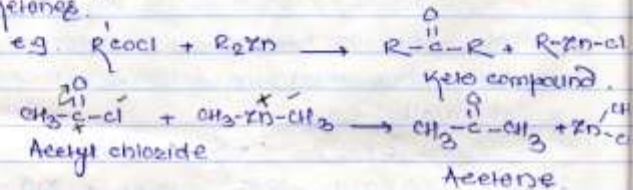 ketones.
e.g. R'COCl + R₂Zn ⟶ R-C(=O)-R + R-Zn-Cl
Keto compound.
CH₃-C(=O)-Cl + CH₃-Zn-CH₃ ⟶ CH₃-C(=O)-CH₃ + Zn
Acetyl chloride
Acetone